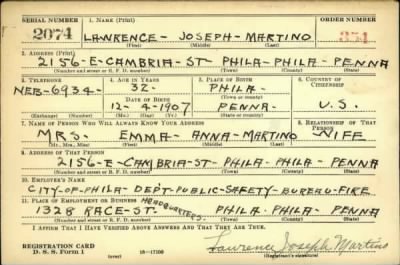 SERIAL NUMBER 1. Name (Print) ORDER NUMBER
2074 LAWRENCE - JOSEPH - MARTINO 354
(First) (Middle) (Last)
2. Address (Print)
2156-E-CAMBRIA-ST PHILA-PHILA- PENNA
(Number and street or R. F. D. number) (Town) (County) (State)
3. Telephone 4. Age in Years 5. Place of Birth 6. Country of Citizenship
NEB-6934- 32- PHILA-
Date of Birth
12-4-1907 PENNA- U.S.
(Exchange) (Number) (Mo.) (Day) (Yr.) (State or country)
7. Name of Person Who Will Always Know Your Address 8. Relationship of That Person
MRS. EMMA- ANNA-MARTINO WIFE
(Mr., Mrs., Miss) (First) (Middle) (Last)
9. Address of That Person
2156-E-CAMBRIA-ST- PHILA- PHILA- PENNA
(Number and street or R. F. D. number) (Town) (County) (State)
10. Employer's Name
CITY-OF-PHILA DEPT-PUBLIC-SAFETY-BUREAU-FIRE
11. Place of Employment or Business HEADQUARTERS
1328 RACE-ST- PHILA- PHILA- PENNA
(Number and street or R. F. D. number) (Town) (County) (State)
I Affirm That I Have Verified Above Answers and That They Are True.
REGISTRATION CARD
D. S. S. Form 1 (over) 16-17105 Lawrence Joseph Martino
(Registrant's signature)